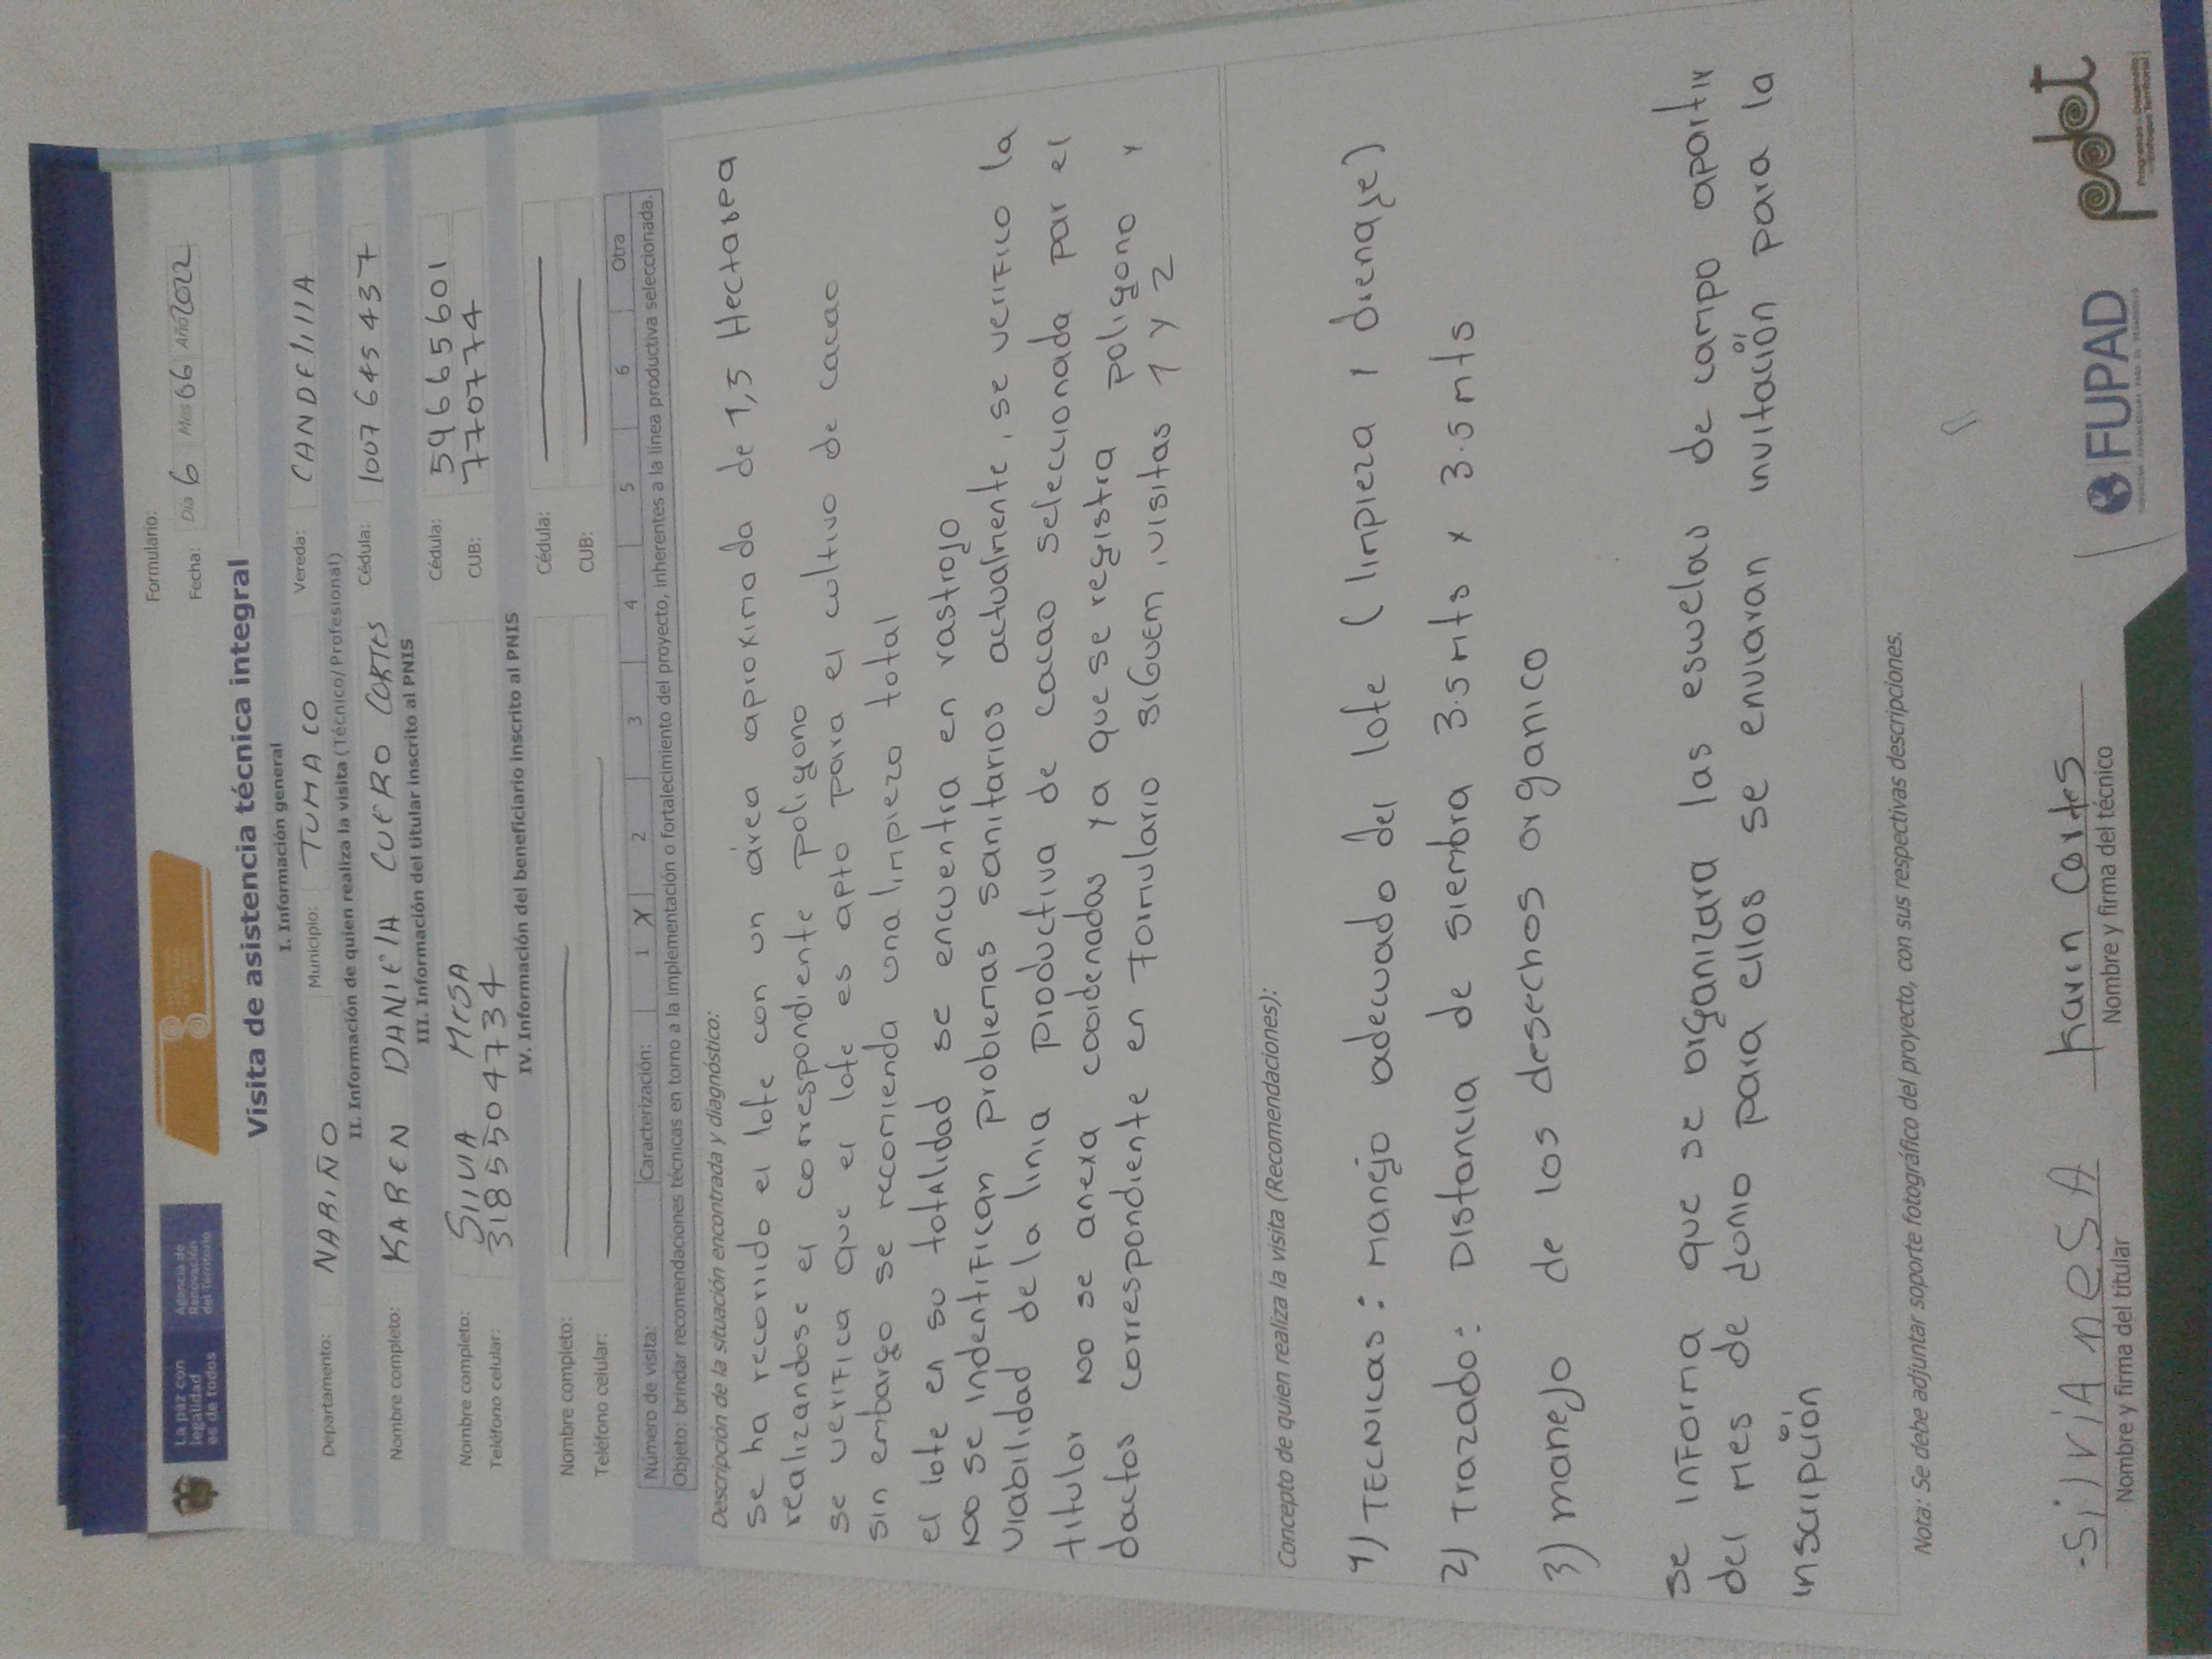 La paz con
legalidad
es de todos
Agencia de
Renovación
del Territorio
Formulario:
Fecha: Día 6 Mes 06 Año 2022
Visita de asistencia técnica integral
I. Información general
Departamento: NARIÑO Municipio: TUMACO Vereda: CANDElillA
II. Información de quien realiza la visita (Técnico/Profesional)
Nombre completo: KAREN DANIElA CUERO CORTES Cédula: 1007645437
III. Información del titular inscrito al PNIS
Nombre completo: SIlVIA MESA Cédula: 59665601
Teléfono celular: 3185504734 CUB: 770774
IV. Información del beneficiario inscrito al PNIS
Nombre completo: Cédula:
Teléfono celular: CUB:
Número de visita: Caracterización: 1 X 2 3 4 5 6 Otra
Objeto: brindar recomendaciones técnicas en torno a la implementación o fortalecimiento del proyecto, inherentes a la línea productiva seleccionada.
Descripción de la situación encontrada y diagnóstico:
se ha recorrido el lote con un área aproximada de 1,5 Hectarea
realizandose el correspondiente poligono
se verifica que el lote es apto para el cultivo de cacao
sin embargo se recomienda una limpieza total
el lote en su totalidad se encuentra en rastrojo
no se indentifican problemas sanitarios actualmente, se verifico la
viabilidad de la linia productiva de cacao seleccionada por el
titular no se anexa coordenadas ya que se registra poligono y
dactos correspondiente en formulario siguem, visitas 1 y 2
Concepto de quien realiza la visita (Recomendaciones):
1) TECNICAS: manejo adecuado del lote (limpieza y drenaje)
2) Trazado: Distancia de siembra 3.5 mts x 3.5 mts
3) manejo de los desechos organico
se informa que se organizara las escuelas de campo apartir
del mes de Junio para ellos se enviaran invitación para la
inscripción
Nota: Se debe adjuntar soporte fotográfico del proyecto, con sus respectivas descripciones.
silviA mesA
Nombre y firma del titular
karen Cortes
Nombre y firma del técnico
FUPAD
pdet
Programas de Desarrollo
con Enfoque Territorial